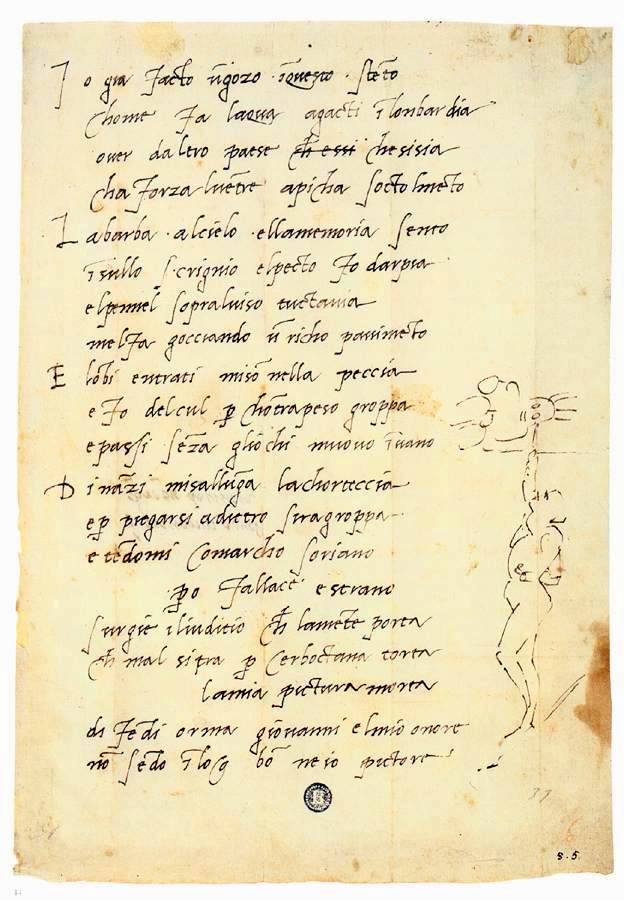 I o gia facto ūgozo ī questo stēto
chome fa laqua agacti ī lonbardia
over daltro paese ch essi chesisia
cha forza lvētre apicha socto lmēto
L abarba alcielo ellamemoria sento
ī sullo scrignio elpecto fo darpia
elpennel sopraluiso tuctavia
melfa gocciando ū richo pavimēto
E lōbi entrati misō nella peccia
e fo delcul p chōtrapeso groppa
epassi sēza gliochi muovo īvano
D ināzi misallūga lachorteccia
e p piegarsi adietro siragroppa
e tēdomi comarcho soriano
po fallace e strano
surgie iliuditio ch lamēte porta
ch mal sitra p cerboctana torta
lamia pictura morta
difēdi orma giovanni elmio onore
nō sēdo ī log bō ne io pictore
33
s. 5.